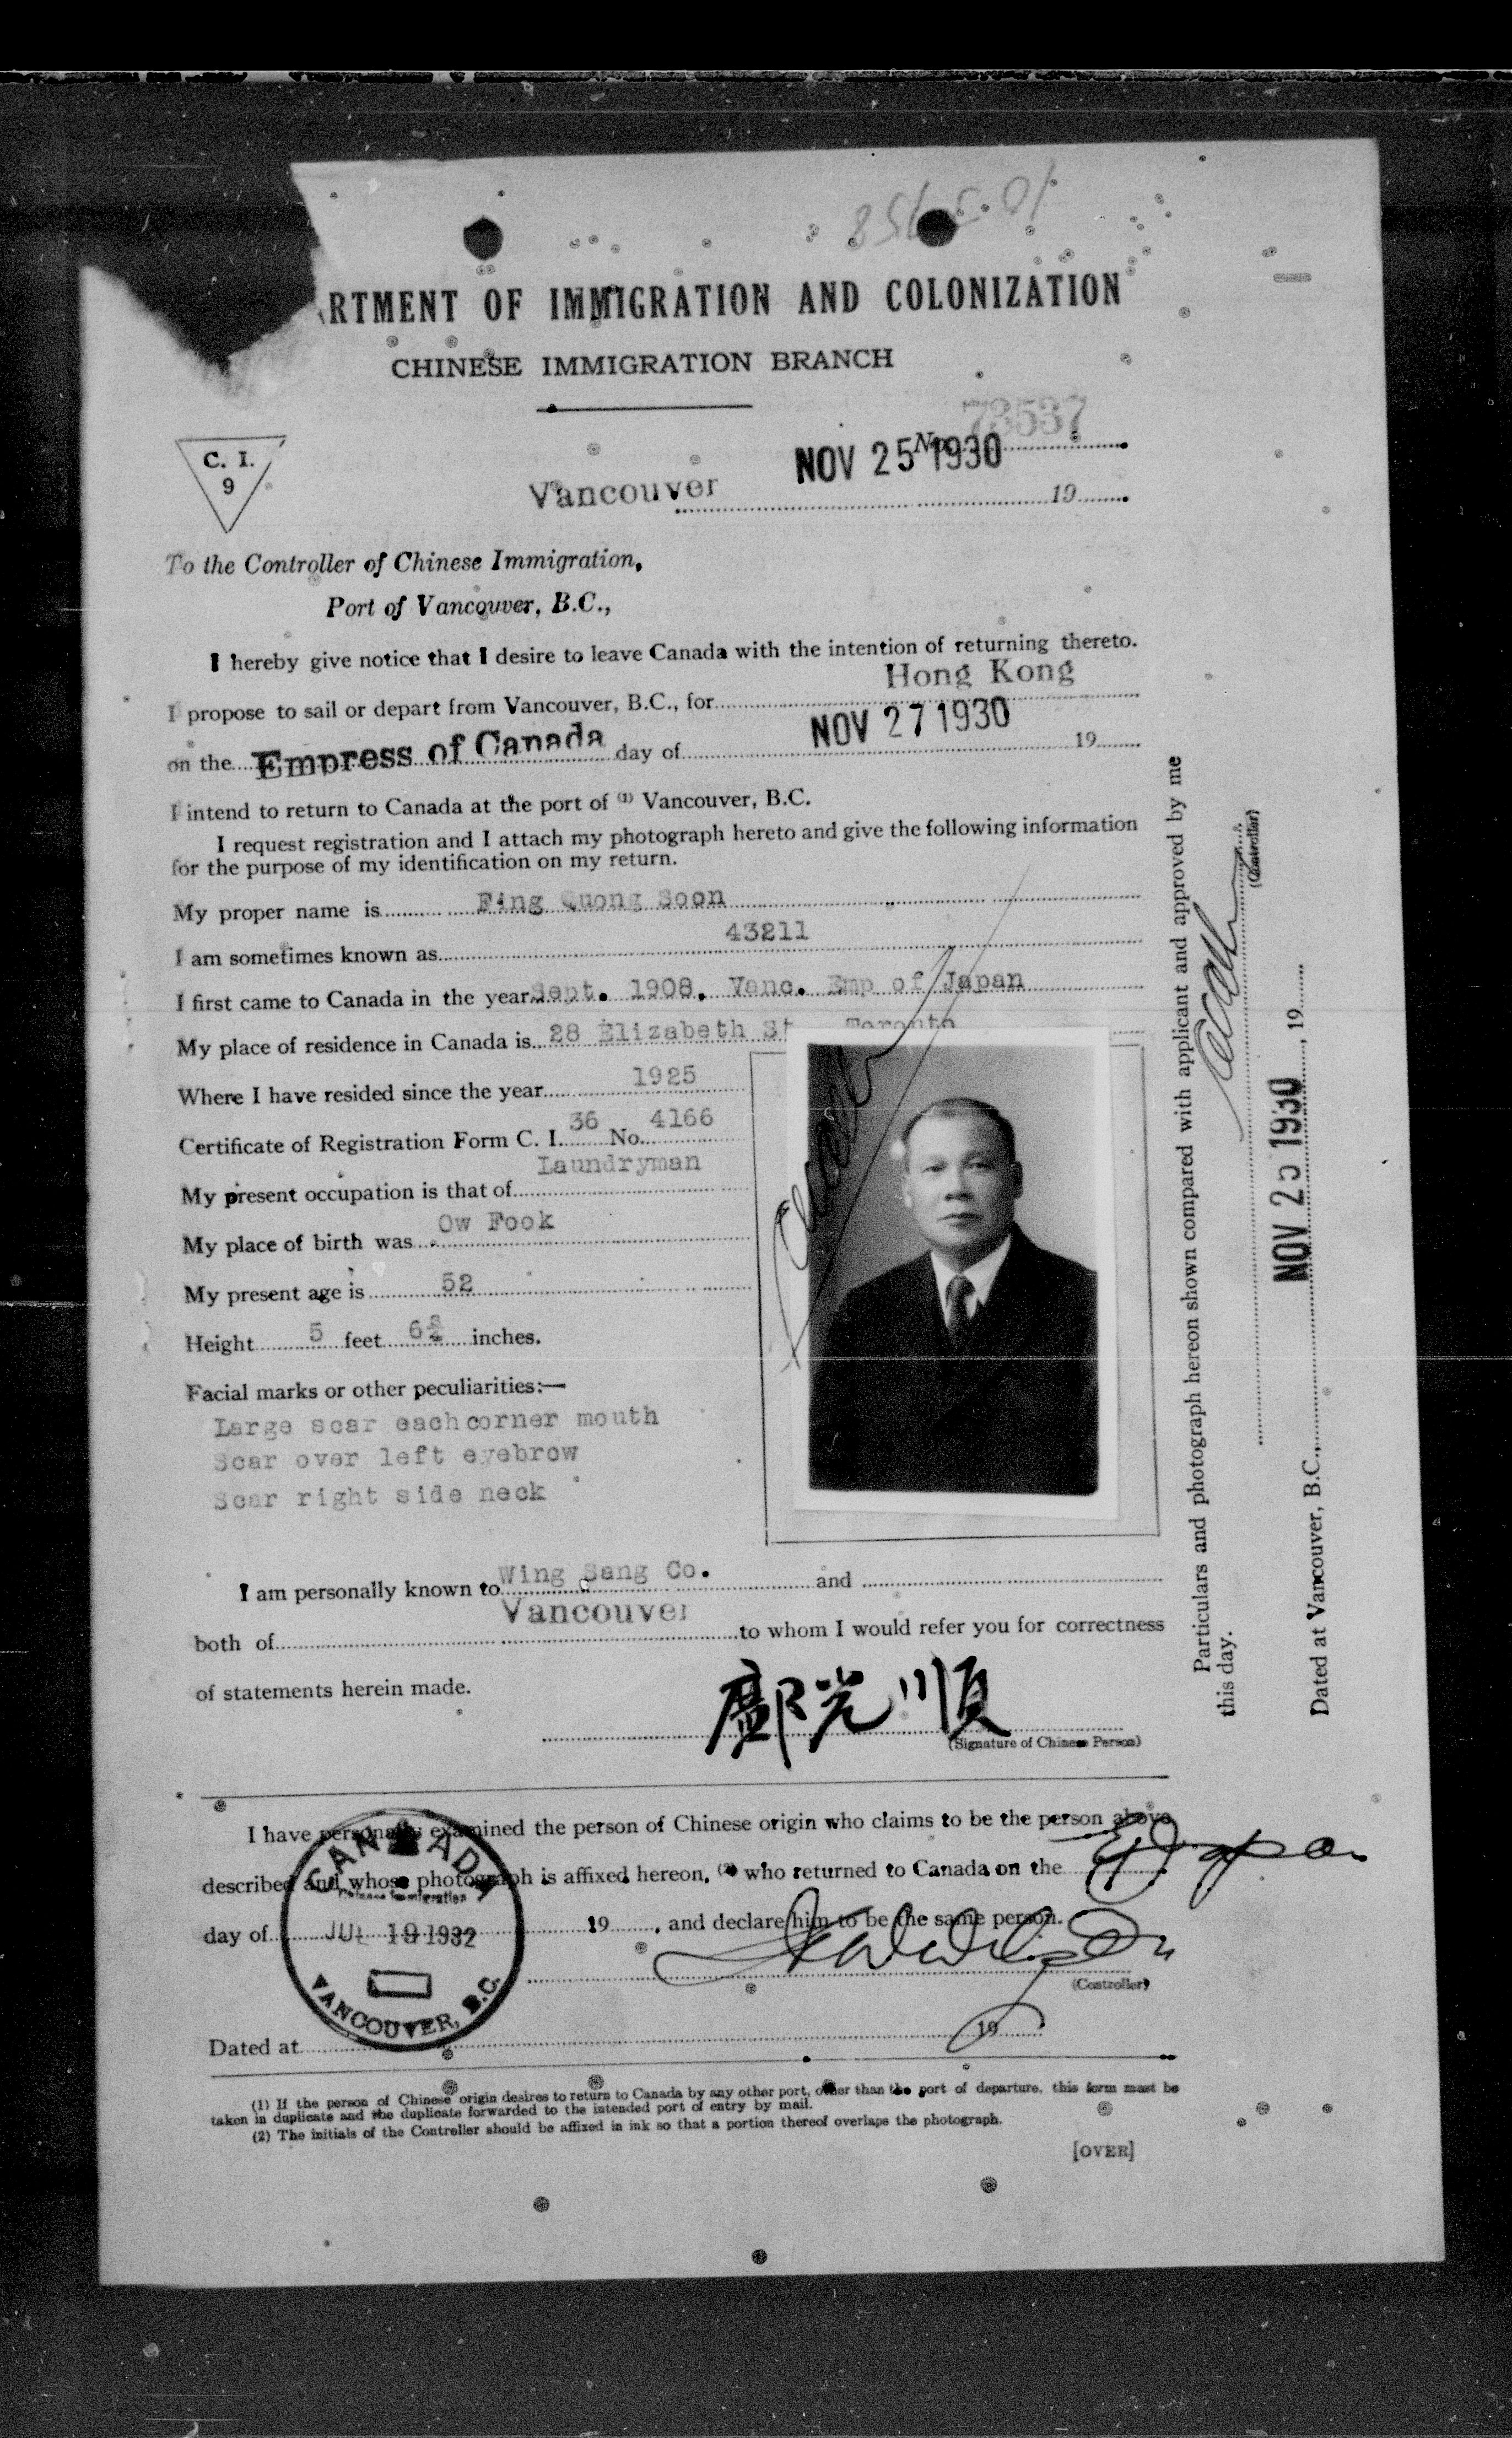 RTMENT OF IMMIGRATION AND COLONIZATION
CHINESE IMMIGRATION BRANCH
No. 73537
C. I.
9
NOV 25 1930
Vancouver 19
To the Controller of Chinese Immigration,
Port of Vancouver, B.C.,
I hereby give notice that I desire to leave Canada with the intention of returning thereto.
I propose to sail or depart from Vancouver, B.C., for Hong Kong
on the Empress of Canada day of NOV 27 1930 19
I intend to return to Canada at the port of (1) Vancouver, B.C.
I request registration and I attach my photograph hereto and give the following information
for the purpose of my identification on my return.
My proper name is Fing Quong Soon
I am sometimes known as 43211
I first came to Canada in the year Sept. 1908. Vanc. Emp of Japan
My place of residence in Canada is 28 Elizabeth St Toronto
Where I have resided since the year 1925
Certificate of Registration Form C. I. 36 No. 4166
My present occupation is that of Laundryman
My place of birth was Ow Fook
My present age is 52
Height 5 feet 6 inches.
Facial marks or other peculiarities:—
Large scar each corner mouth
Scar over left eyebrow
Scar right side neck
I am personally known to Wing Sang Co. and
both of Vancouver to whom I would refer you for correctness
of statements herein made.
鄺光順
(Signature of Chinese Person)
I have personally examined the person of Chinese origin who claims to be the person above
described and whose photograph is affixed hereon, (2) who returned to Canada on the
day of 19 , and declare him to be the same person.
CANADA
Chinese Immigration
JUL 19 1932
VANCOUVER, B.C.
(Controller)
Dated at 19
(1) If the person of Chinese origin desires to return to Canada by any other port, other than the port of departure, this form must be
taken in duplicate and the duplicate forwarded to the intended port of entry by mail.
(2) The initials of the Controller should be affixed in ink so that a portion thereof overlaps the photograph.
[OVER]
Particulars and photograph hereon shown compared with applicant and approved by me
this day.
(Controller)
Dated at Vancouver, B.C., NOV 25 1930, 19